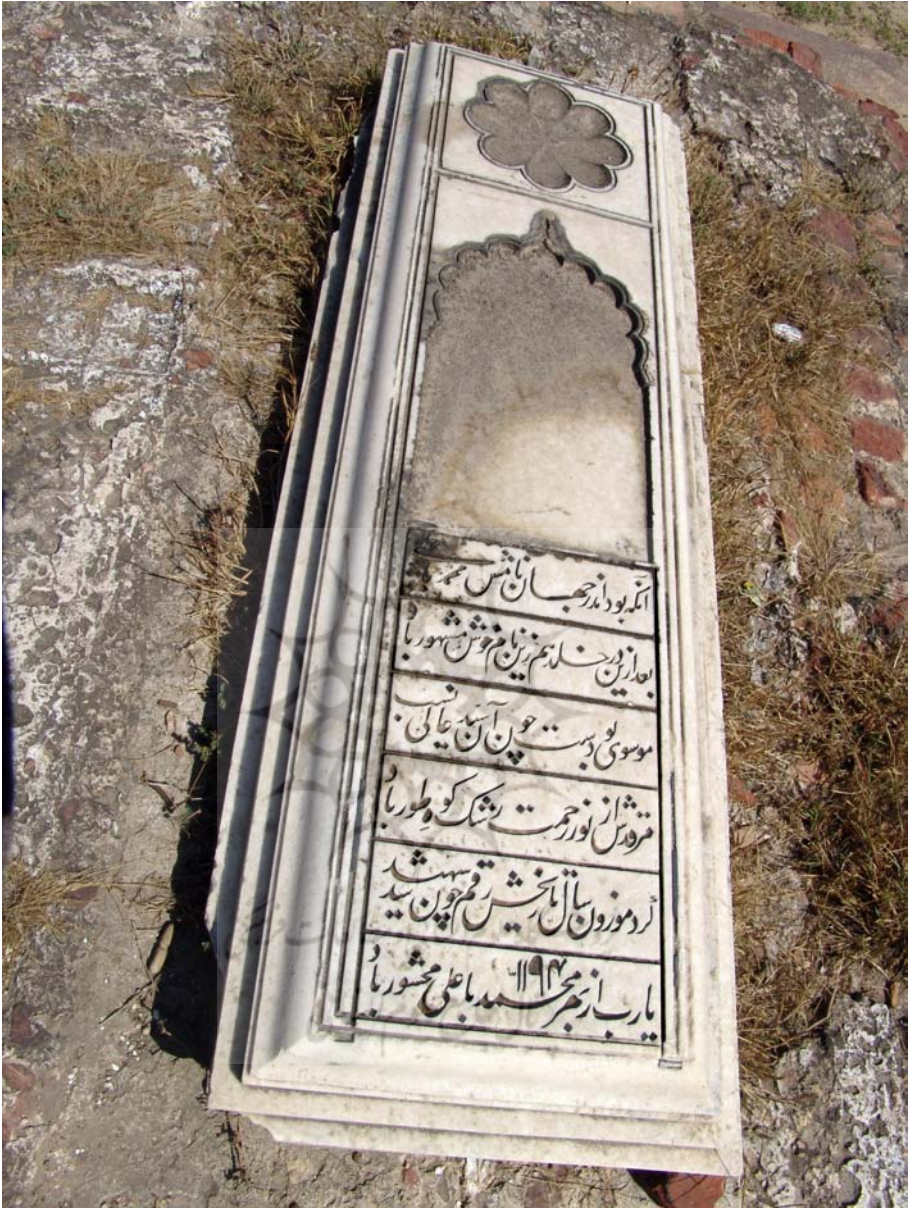 انکه بود اندر جهان نامش محمد
بعد ازین در خلد هم زین نام خوش مشهور باد
موسوی بودست چون آن سید عالی نسب
مرقدش از نور رحمت رشک کوه طور باد
کرد موزون سال تاریخش رقم چون سید شهید
یارب از بهر محمد با علی محشور باد
۱۱۹۴